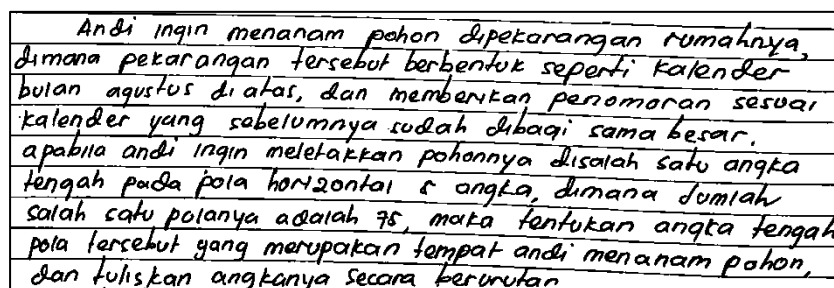 Andi ingin menanam pohon dipekarangan rumahnya,
dimana pekarangan tersebut berbentuk seperti kalender
bulan agustus di atas, dan memberikan penomoran sesuai
kalender yang sebelumnya sudah dibagi sama besar.
apabila andi ingin meletakkan pohonnya disalah satu angka
tengah pada pola horizontal 5 angka, dimana Jumlah
salah satu polanya adalah 75, maka tentukan angka tengah
pola tersebut yang merupakan tempat andi menanam pohon,
dan tuliskan angkanya secara berurutan